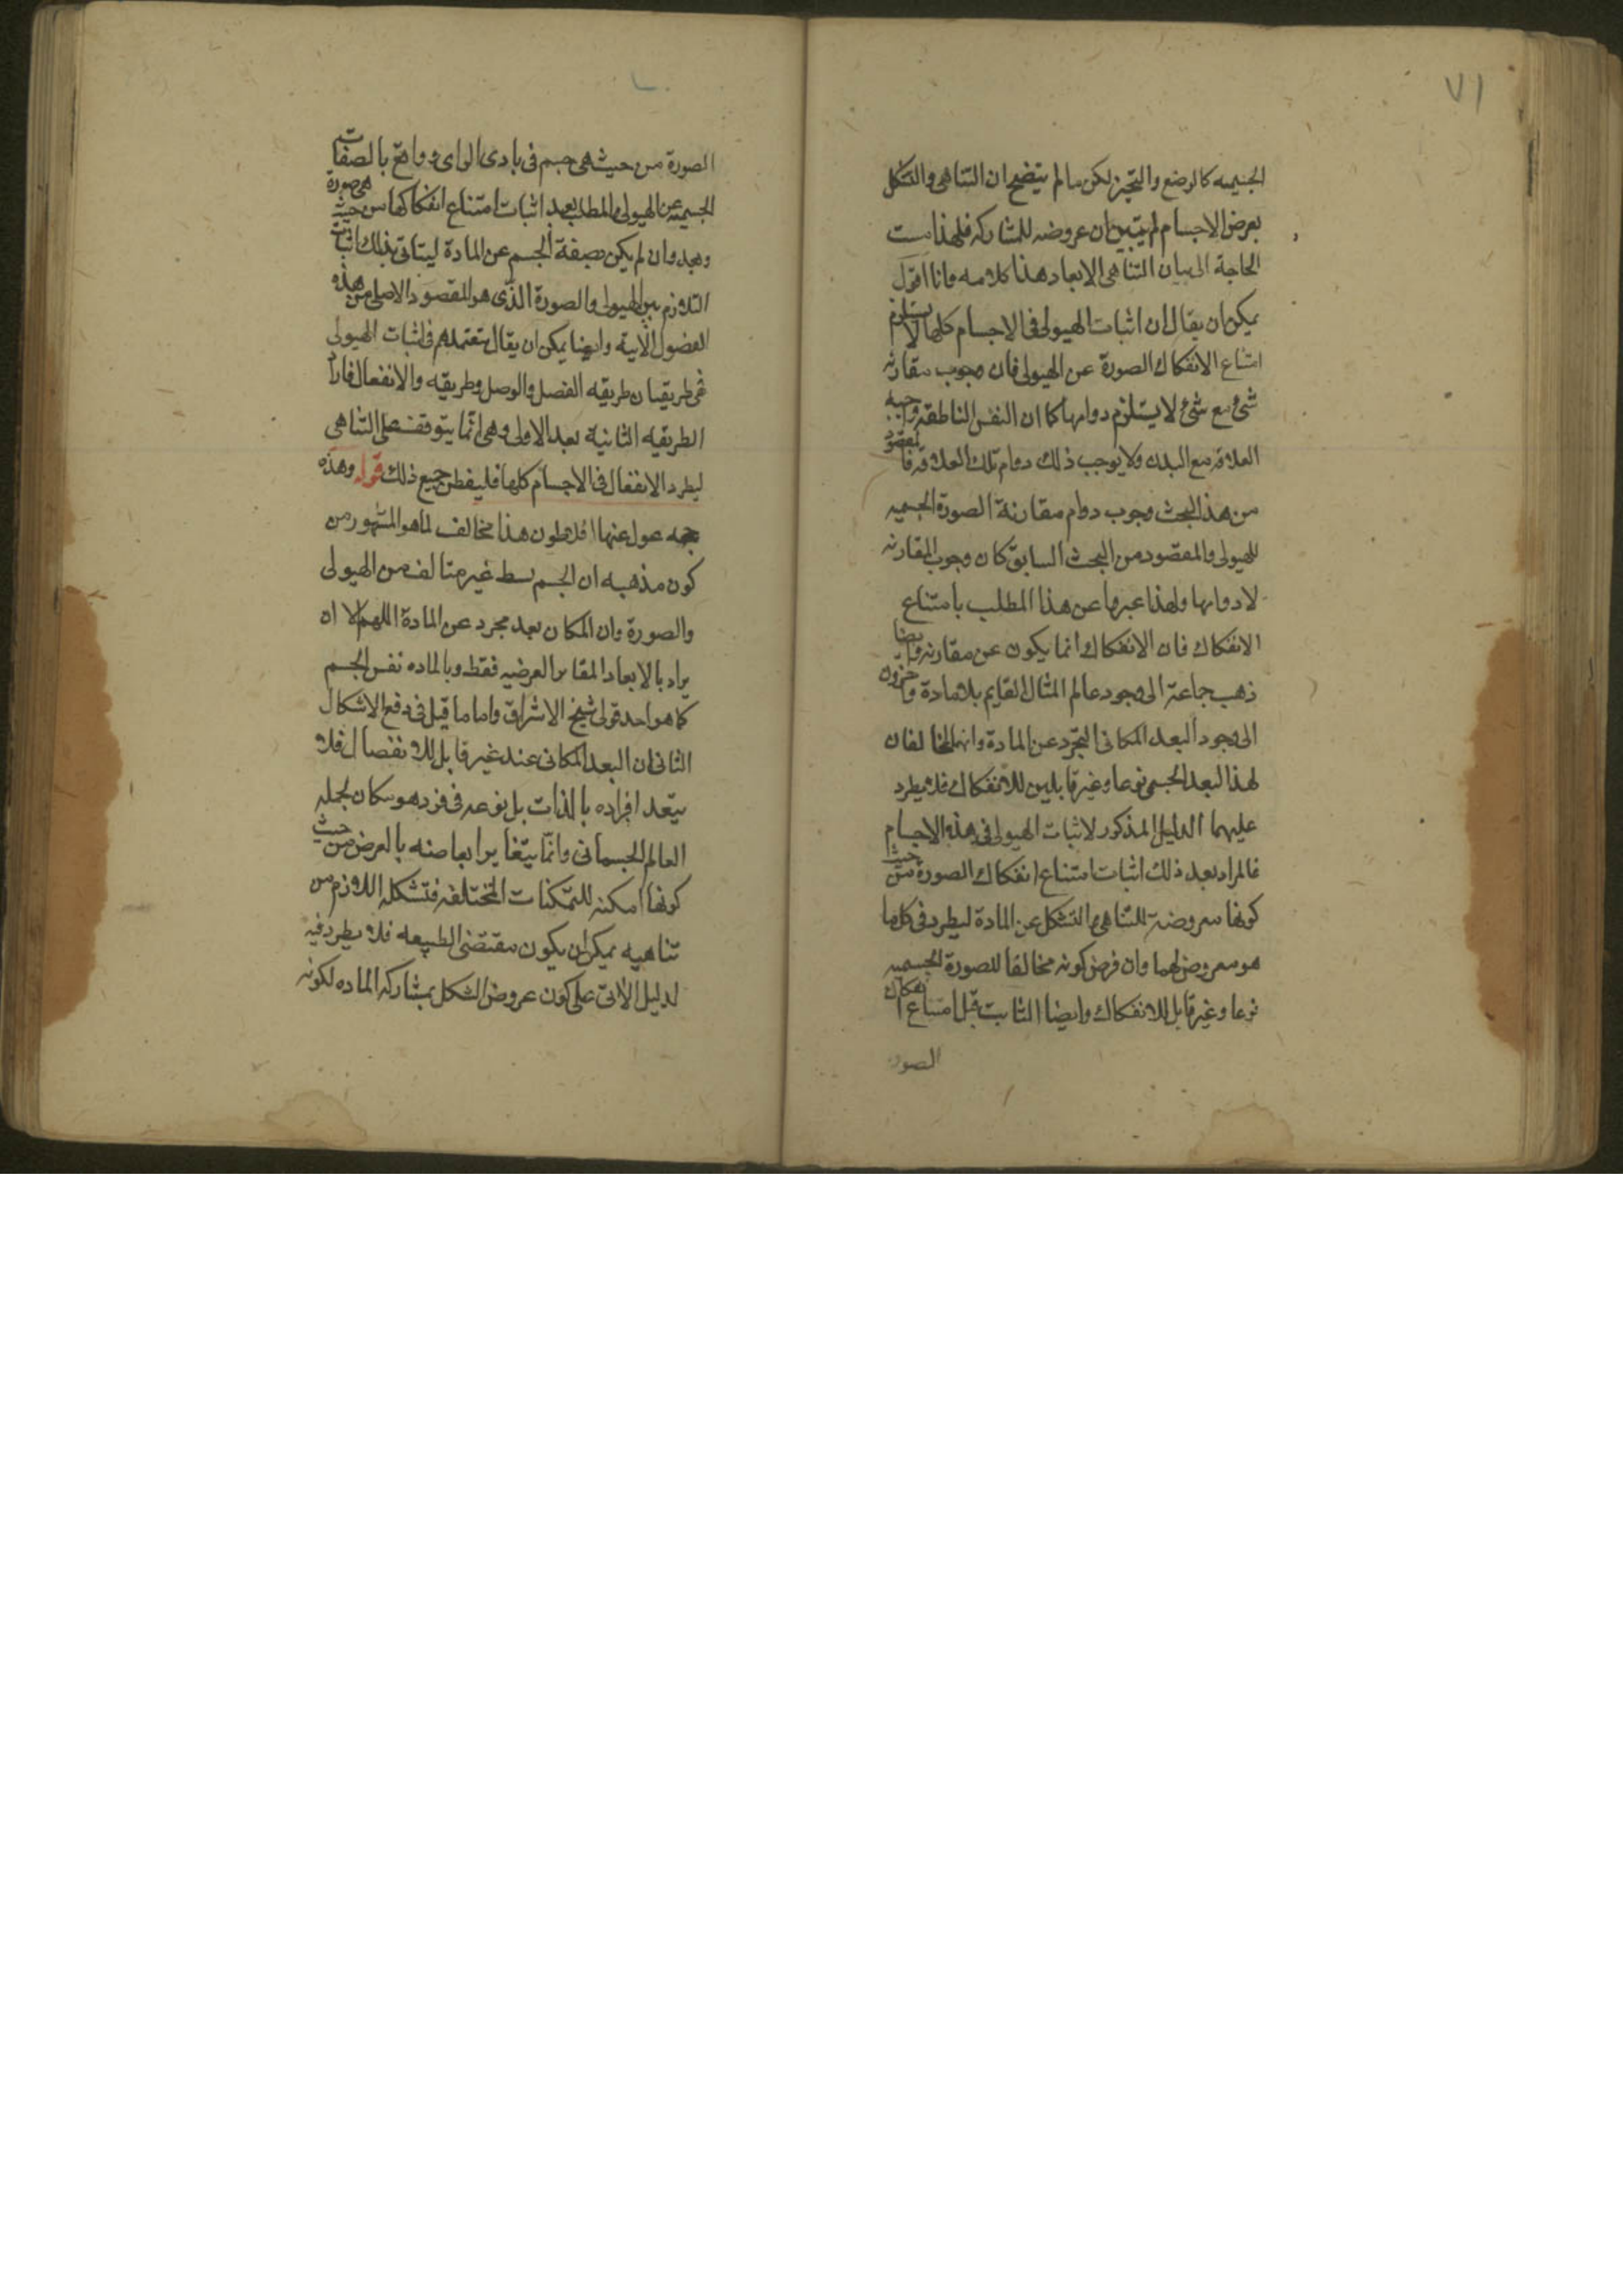 ٧١
الجسميه كالوضع والتحيز لكن مالم يتضح ان التناهى والتشكل
يعرض الاجسام لم يتبين ان عروضه للمشاركه فلهذا مست
الحاجة الى بيان التناهى الابعاد هذا كلامه وانا اقول
يمكن ان يقال ان اثبات الهيولى فى الاجسام كلها لا يستلزم
امتناع الانفكاك الصورة عن الهيولى فان وجوب مقارنه
شئ مع شئ لا يستلزم دوامها كما ان النفس الناطقه واجبه
العلاقه مع البدن ولا يوجب ذلك دوام تلك العلاقه فالمقصود
من هذا البحث وجوب دوام مقارنة الصورة الجسميه
للهيولى والمقصود من البحث السابق كان وجوب المقارنه
لا دوامها ولهذا عبروا عن هذا المطلب بامتناع
الانفكاك فان الانفكاك انما يكون عن مقارنه وايضا
ذهب جماعة الى وجود عالم المثال القايم بلا مادة واخرون
الى وجود البعد المكانى المجرد عن المادة وانهما مخالفان
لهذا البعد الجسمى نوعا وغير قابلين للانفكاك فلا يطرد
عليهما الدليل المذكور لاثبات الهيولى فى هذه الاجسام
فالمراد بعد ذلك اثبات امتناع انفكاك الصورة من حيث
كونها معروضة للتناهى والتشكل عن المادة ليطرد فى كل ما
هو معروض لهما وان فرض كونه مخالفا للصورة الجسميه
نوعا وغير قابل للانفكاك وايضا الثابت قبل امتناع انفكاك
الصور
الصورة من حيث هى جسم فى بادى الراى بالصفات
الجسميه عن الهيولى والمطلب بعد اثبات امتناع انفكاكها من حيث هى صورة
وبعد وان لم يكن بصفة الجسم عن المادة ليتاتى بذلك اثبات
التلازم بين الهيولى والصورة الذى هو المقصود الاصلى من هذه
الفصول الاتية وايضا يمكن ان يقال معتمدهم فى اثبات الهيولى
طريقان طريقه الفصل والوصل وطريقه والانفعال
الطريقه الثانية بعد الاولى وهى انما يتوقف على التناهى
ليطرد الانفعال فى الاجسام كلها فليفطن جميع ذلك قوله وهذه
عول عنها افلاطون هذا مخالف لما هو المشهور من
كون مذهبه ان الجسم بسط غير متالف من الهيولى
والصورة وان المكان بعد مجرد عن المادة اللهم الا ان
يراد بالابعاد المقادير العرضيه فقط وبالماده نفس الجسم
كما هو احد قولى شيخ الاشراق واما ما قيل فى دفع الاشكال
الثانى ان البعد المكانى عند غير قابل للانفصال فلا
يتعد افراده بالذات بل نوعه فى فرد هو مكان لجملة
العالم الجسمانى وانما يتغاير ابعاضه بالعرض من حيث
كونها امكنه للمتمكنات المختلفه فتشكله اللازم من
تناهيه يمكن ان يكون مقتضى الطبيعه فلا يطرد فيه
لدليل الاتى على كون عروض الشكل بمشاركه الماده لكونه